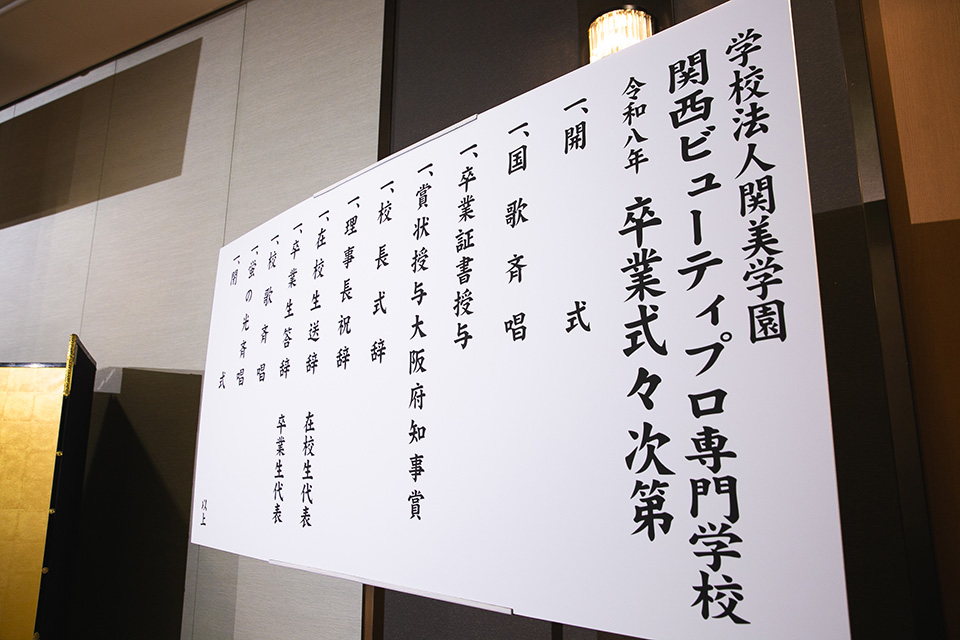 学校法人関美学園
関西ビューティプロ専門学校
令和八年 卒業式々次第
一、開式
一、国歌斉唱
一、卒業証書授与
一、賞状授与大阪府知事賞
一、校長式辞
一、理事長祝辞
一、在校生送辞 在校生代表
一、卒業生答辞 卒業生代表
一、校歌斉唱
一、蛍の光斉唱
一、閉式
以上